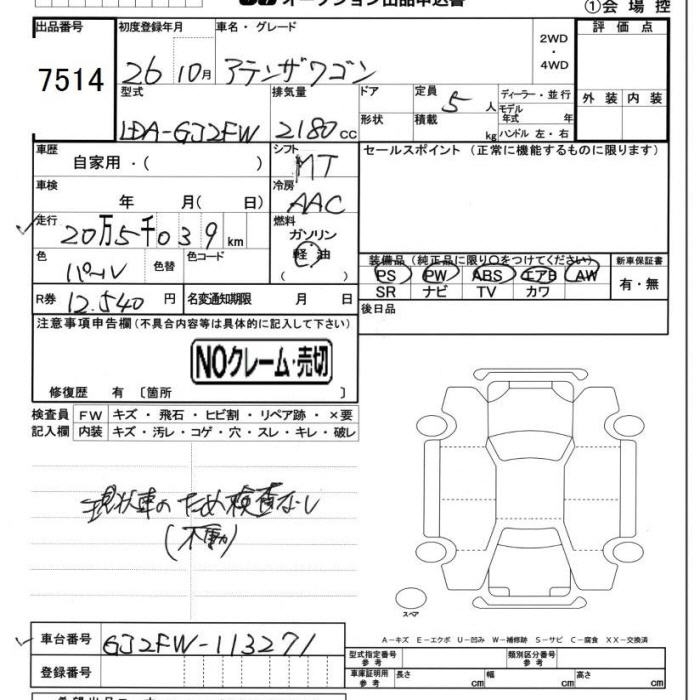 オークション出品申込書
①会場控
出品番号 初度登録年月 車名・グレード 2WD・4WD 評価点
7514 26 10月 アテンザワゴン
型式 排気量 ドア 定員 5人 ディーラー・並行 外装 内装
LDA-GJ2FW 2180cc 形状 積載 kg モデル年式 年 ハンドル 左・右
車歴 自家用・( ) シフト MT セールスポイント (正常に機能するものに限ります)
車検 年 月( 日) 冷房 AAC
走行 20万5千039km 燃料 ガソリン
色 パール 色替 色コード 軽油 ( )
装備品(純正品に限り○をつけてください) 新車保証書
PS PW ABS エアB AW 有・無
SR ナビ TV カワ
R券 12.540円 名変通知期限 月 日 後日品
注意事項申告欄(不具合内容等は具体的に記入して下さい)
NOクレーム・売切
修復歴 有 〔箇所 〕
検査員 FW キズ・飛石・ヒビ割・リペア跡・×要
記入欄 内装 キズ・汚レ・コゲ・穴・スレ・キレ・破レ
現状車のため検査なし
(不動)
スペア
A-キズ E-エクボ U-凹み W-補修跡 S-サビ C-腐食 XX-交換済
車台番号 GJ2FW-113271 型式指定番号 参考 類別区分番号 参考
登録番号 車庫証明用 参考 長さ cm 幅 cm 高さ cm